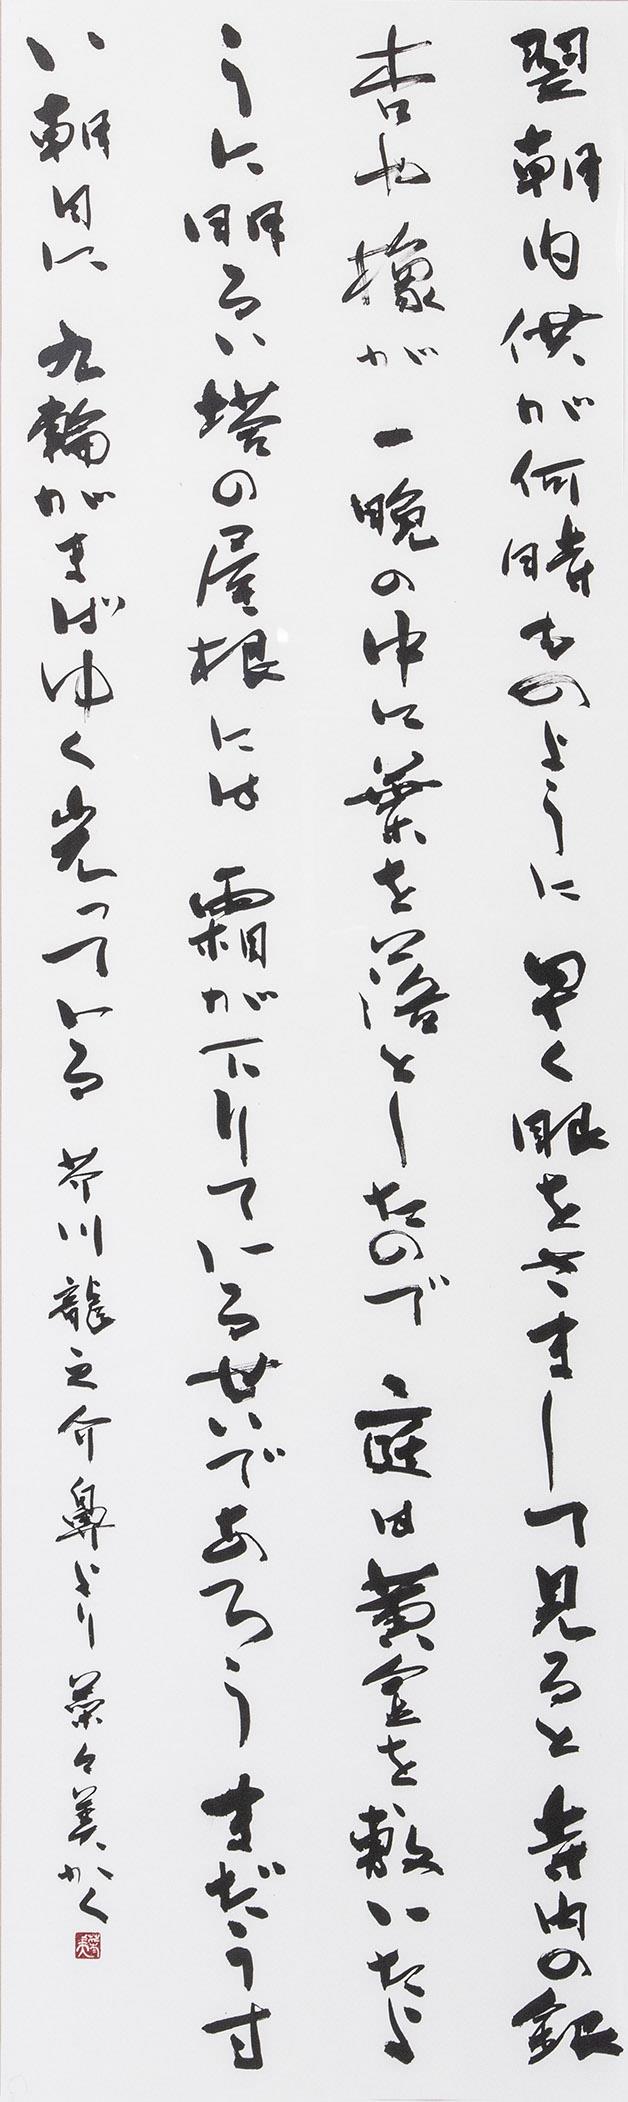 翌朝内供が何時ものように早く眼をさまして見ると寺内の銀
杏や橡が一晩の中に葉を落としたので庭は黄金を敷いたよ
うに明るい塔の屋根には霜が下りているせいであろうまだうす
い朝日に九輪がまばゆく光っている芥川龍之介鼻より菜々美かく